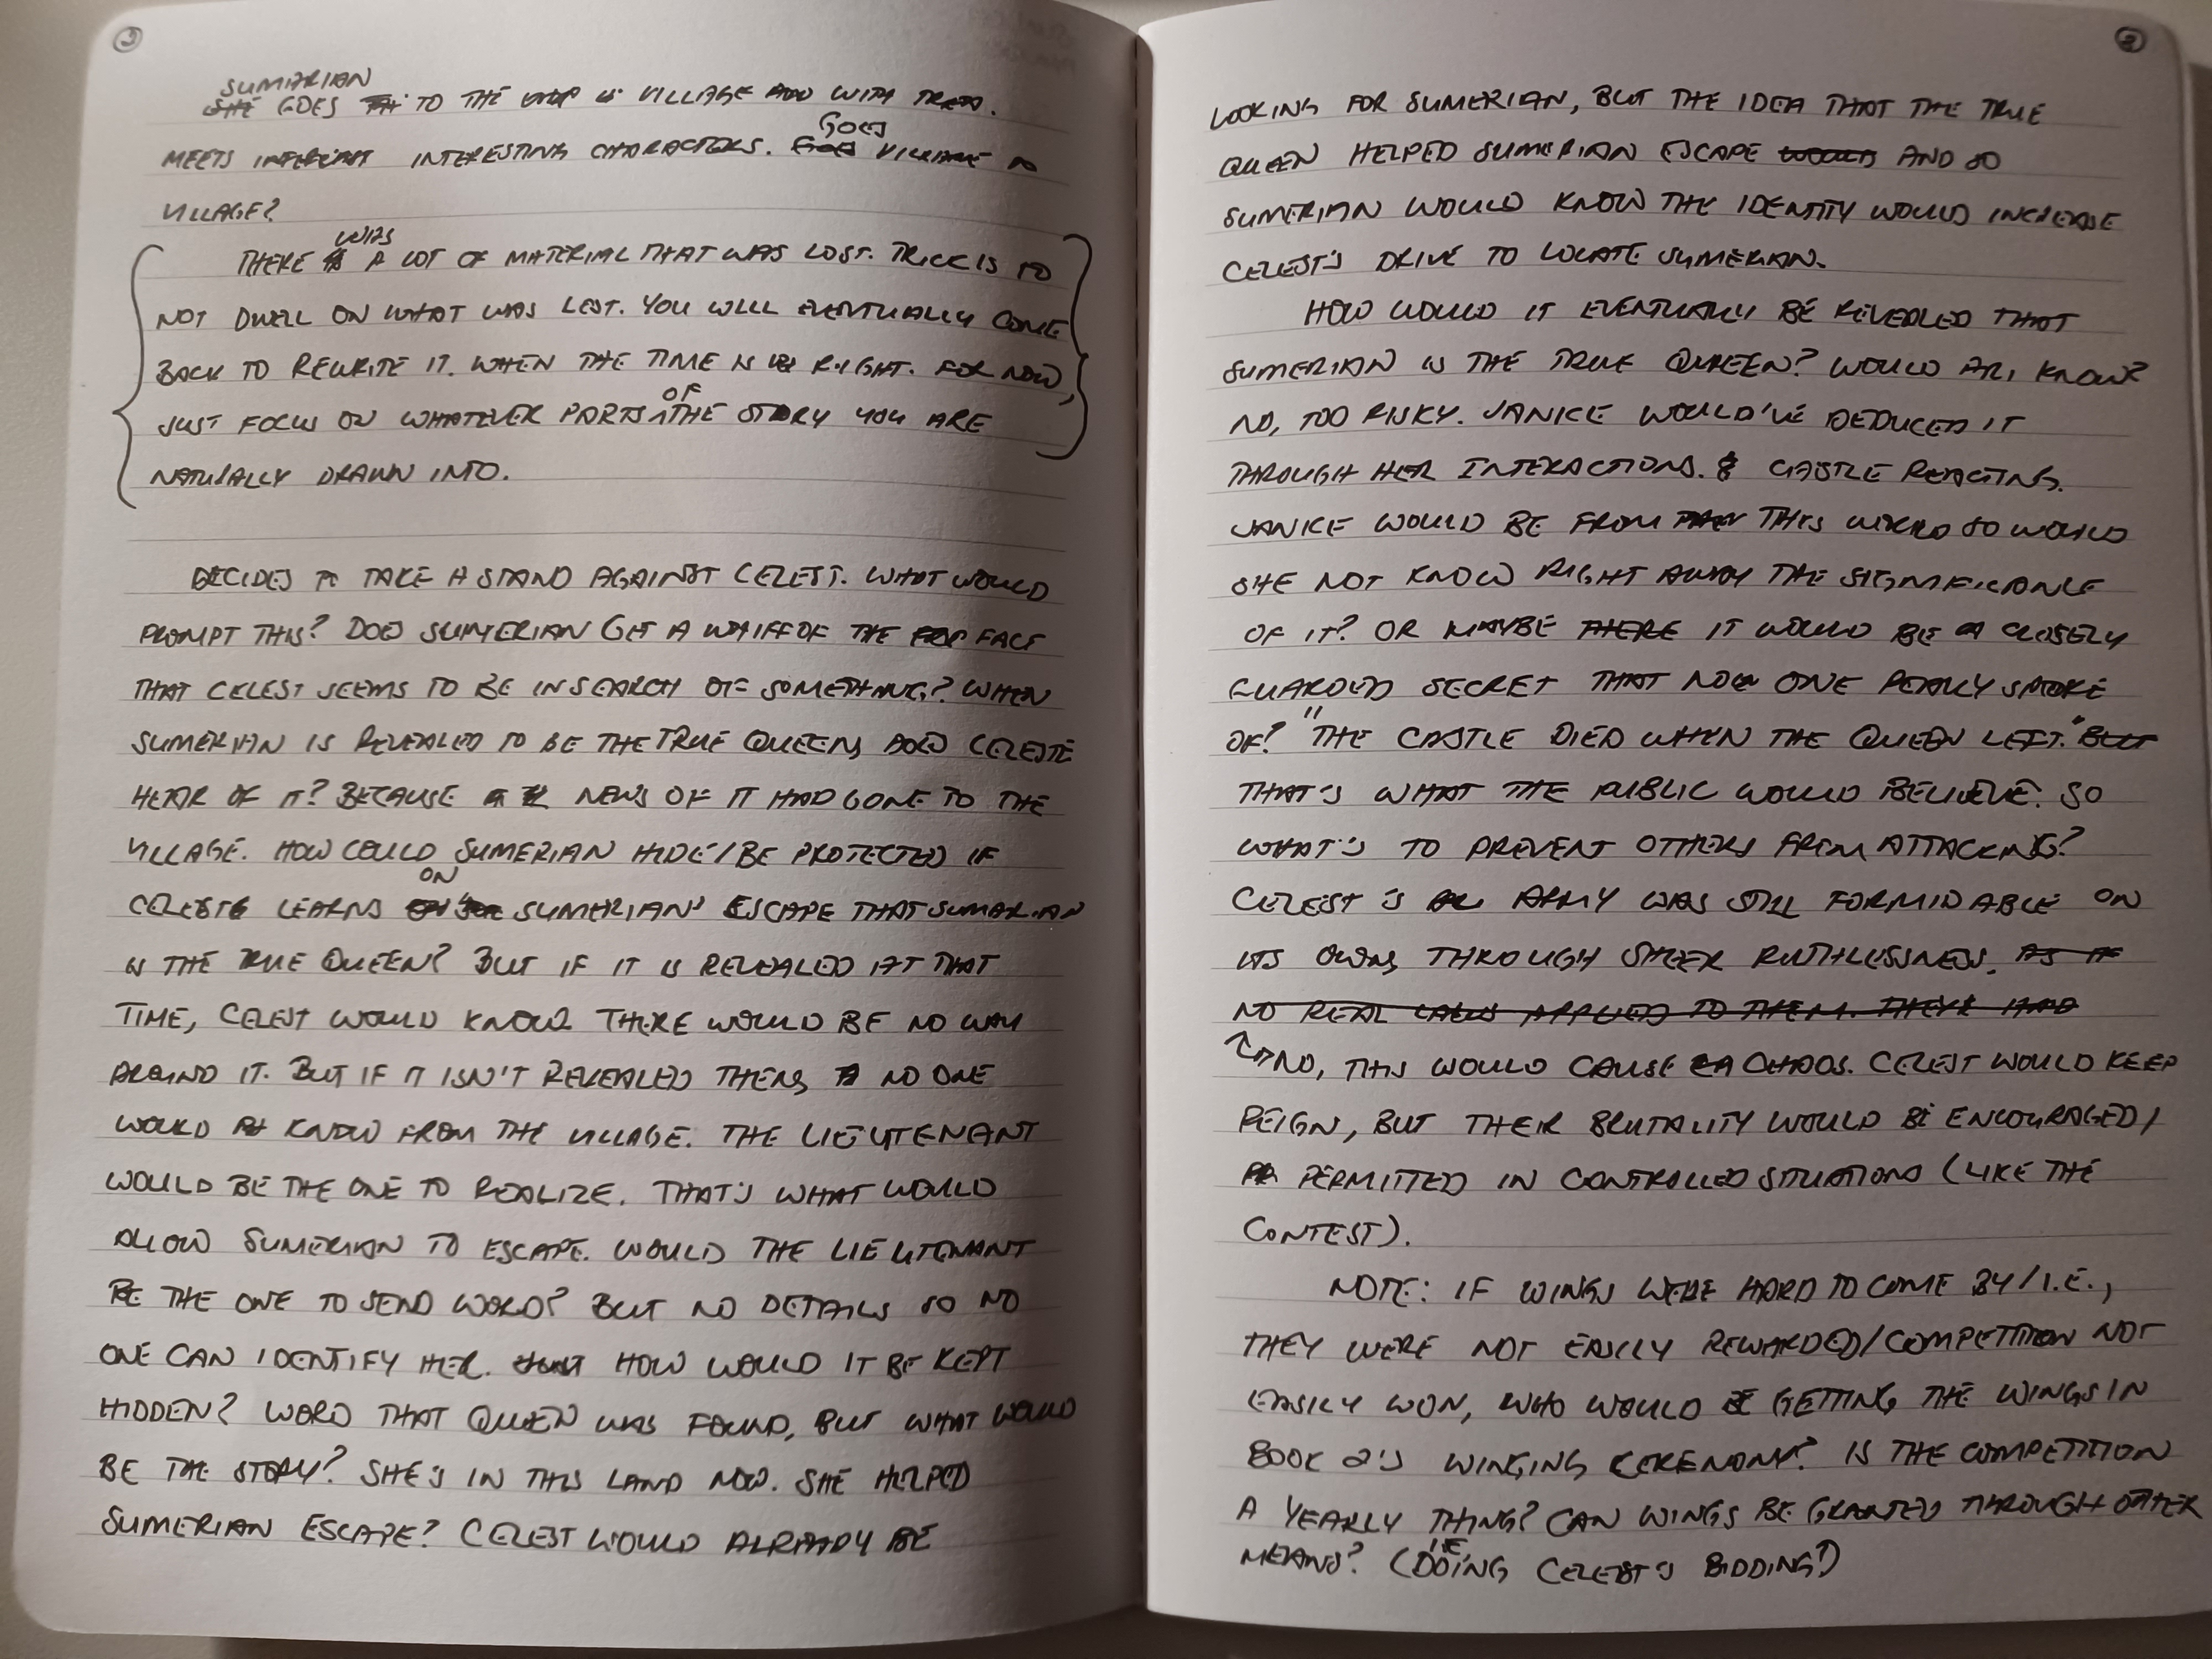 SUMARIAN
SHE GOES TO THE VILLAGE AND WITH TREA.
MEETS INTERESTING CHARACTERS. GOES VILLAGE
VILLAGE?
WAS
THERE IS A LOT OF MATERIAL THAT WAS LOST. TRICK IS TO
NOT DWELL ON WHAT WAS LOST. YOU WILL EVENTUALLY COME
BACK TO REWRITE IT. WHEN THE TIME IS RIGHT. FOR NOW,
JUST FOCUS ON WHATEVER PARTS OF THE STORY YOU ARE
NATURALLY DRAWN INTO.
DECIDES TO TAKE A STAND AGAINST CELEST. WHAT WOULD
PROMPT THIS? DOES SUMERIAN GET A WHIFF OF THE FACT
THAT CELEST SEEMS TO BE IN SEARCH OF SOMETHING? WHEN
SUMERIAN IS REVEALED TO BE THE TRUE QUEEN, DOES CELESTE
HEAR OF IT? BECAUSE NEWS OF IT HAD GONE TO THE
VILLAGE. HOW COULD SUMERIAN HIDE/BE PROTECTED IF
CELESTE LEARNS ON SUMERIAN'S ESCAPE THAT SUMARIAN
IS THE TRUE QUEEN? BUT IF IT IS REVEALED AT THAT
TIME, CELEST WOULD KNOW. THERE WOULD BE NO WAY
AROUND IT. BUT IF IT ISN'T REVEALED THEN, NO ONE
WOULD KNOW FROM THE VILLAGE. THE LIEUTENANT
WOULD BE THE ONE TO REALIZE. THAT'S WHAT WOULD
ALLOW SUMERIAN TO ESCAPE. WOULD THE LIEUTENANT
BE THE ONE TO SEND WORD? BUT NO DETAILS SO NO
ONE CAN IDENTIFY HER. HOW WOULD IT BE KEPT
HIDDEN? WORD THAT QUEEN WAS FOUND, BUT WHAT WOULD
BE THE STORY? SHE'S IN THIS LAND NOW. SHE HELPED
SUMERIAN ESCAPE? CELEST WOULD ALREADY BE
LOOKING FOR SUMERIAN, BUT THE IDEA THAT THE TRUE
QUEEN HELPED SUMERIAN ESCAPE WOULD AND SO
SUMERIAN WOULD KNOW THE IDENTITY WOULD INCREASE
CELEST'S DRIVE TO LOCATE SUMERIAN.
HOW WOULD IT EVENTUALLY BE REVEALED THAT
SUMERIAN IS THE TRUE QUEEN? WOULD ARI KNOW?
NO, TOO RISKY. JANICE WOULD'VE DEDUCED IT
THROUGH HER INTERACTIONS. & CASTLE REACTING.
JANICE WOULD BE FROM THIS WORLD SO WOULD
SHE NOT KNOW RIGHT AWAY THE SIGNIFICANCE
OF IT? OR MAYBE THERE IT WOULD BE A CLOSELY
GUARDED SECRET THAT NO ONE REALLY SPOKE
OF? "THE CASTLE DIED WHEN THE QUEEN LEFT." BUT
THAT'S WHAT THE PUBLIC WOULD BELIEVE. SO
WHAT'S TO PREVENT OTHERS FROM ATTACKING?
CELEST'S ARMY WAS STILL FORMIDABLE ON
ITS OWN, THROUGH SHEER RUTHLESSNESS. AS IF
NO REAL LAWS APPLIED TO THEM. THEY HAD
NO, THIS WOULD CAUSE CHAOS. CELEST WOULD KEEP
REIGN, BUT THEIR BRUTALITY WOULD BE ENCOURAGED/
PERMITTED IN CONTROLLED SITUATIONS (LIKE THE
CONTEST).
NOTE: IF WINGS WERE HARD TO COME BY/I.E.,
THEY WERE NOT EASILY REWARDED/COMPETITION NOT
EASILY WON, WHO WOULD BE GETTING THE WINGS IN
BOOK 2'S WINGING CEREMONY? IS THE COMPETITION
A YEARLY THING? CAN WINGS BE GRANTED THROUGH OTHER
MEANS? (I.E. DOING CELEST'S BIDDING?)